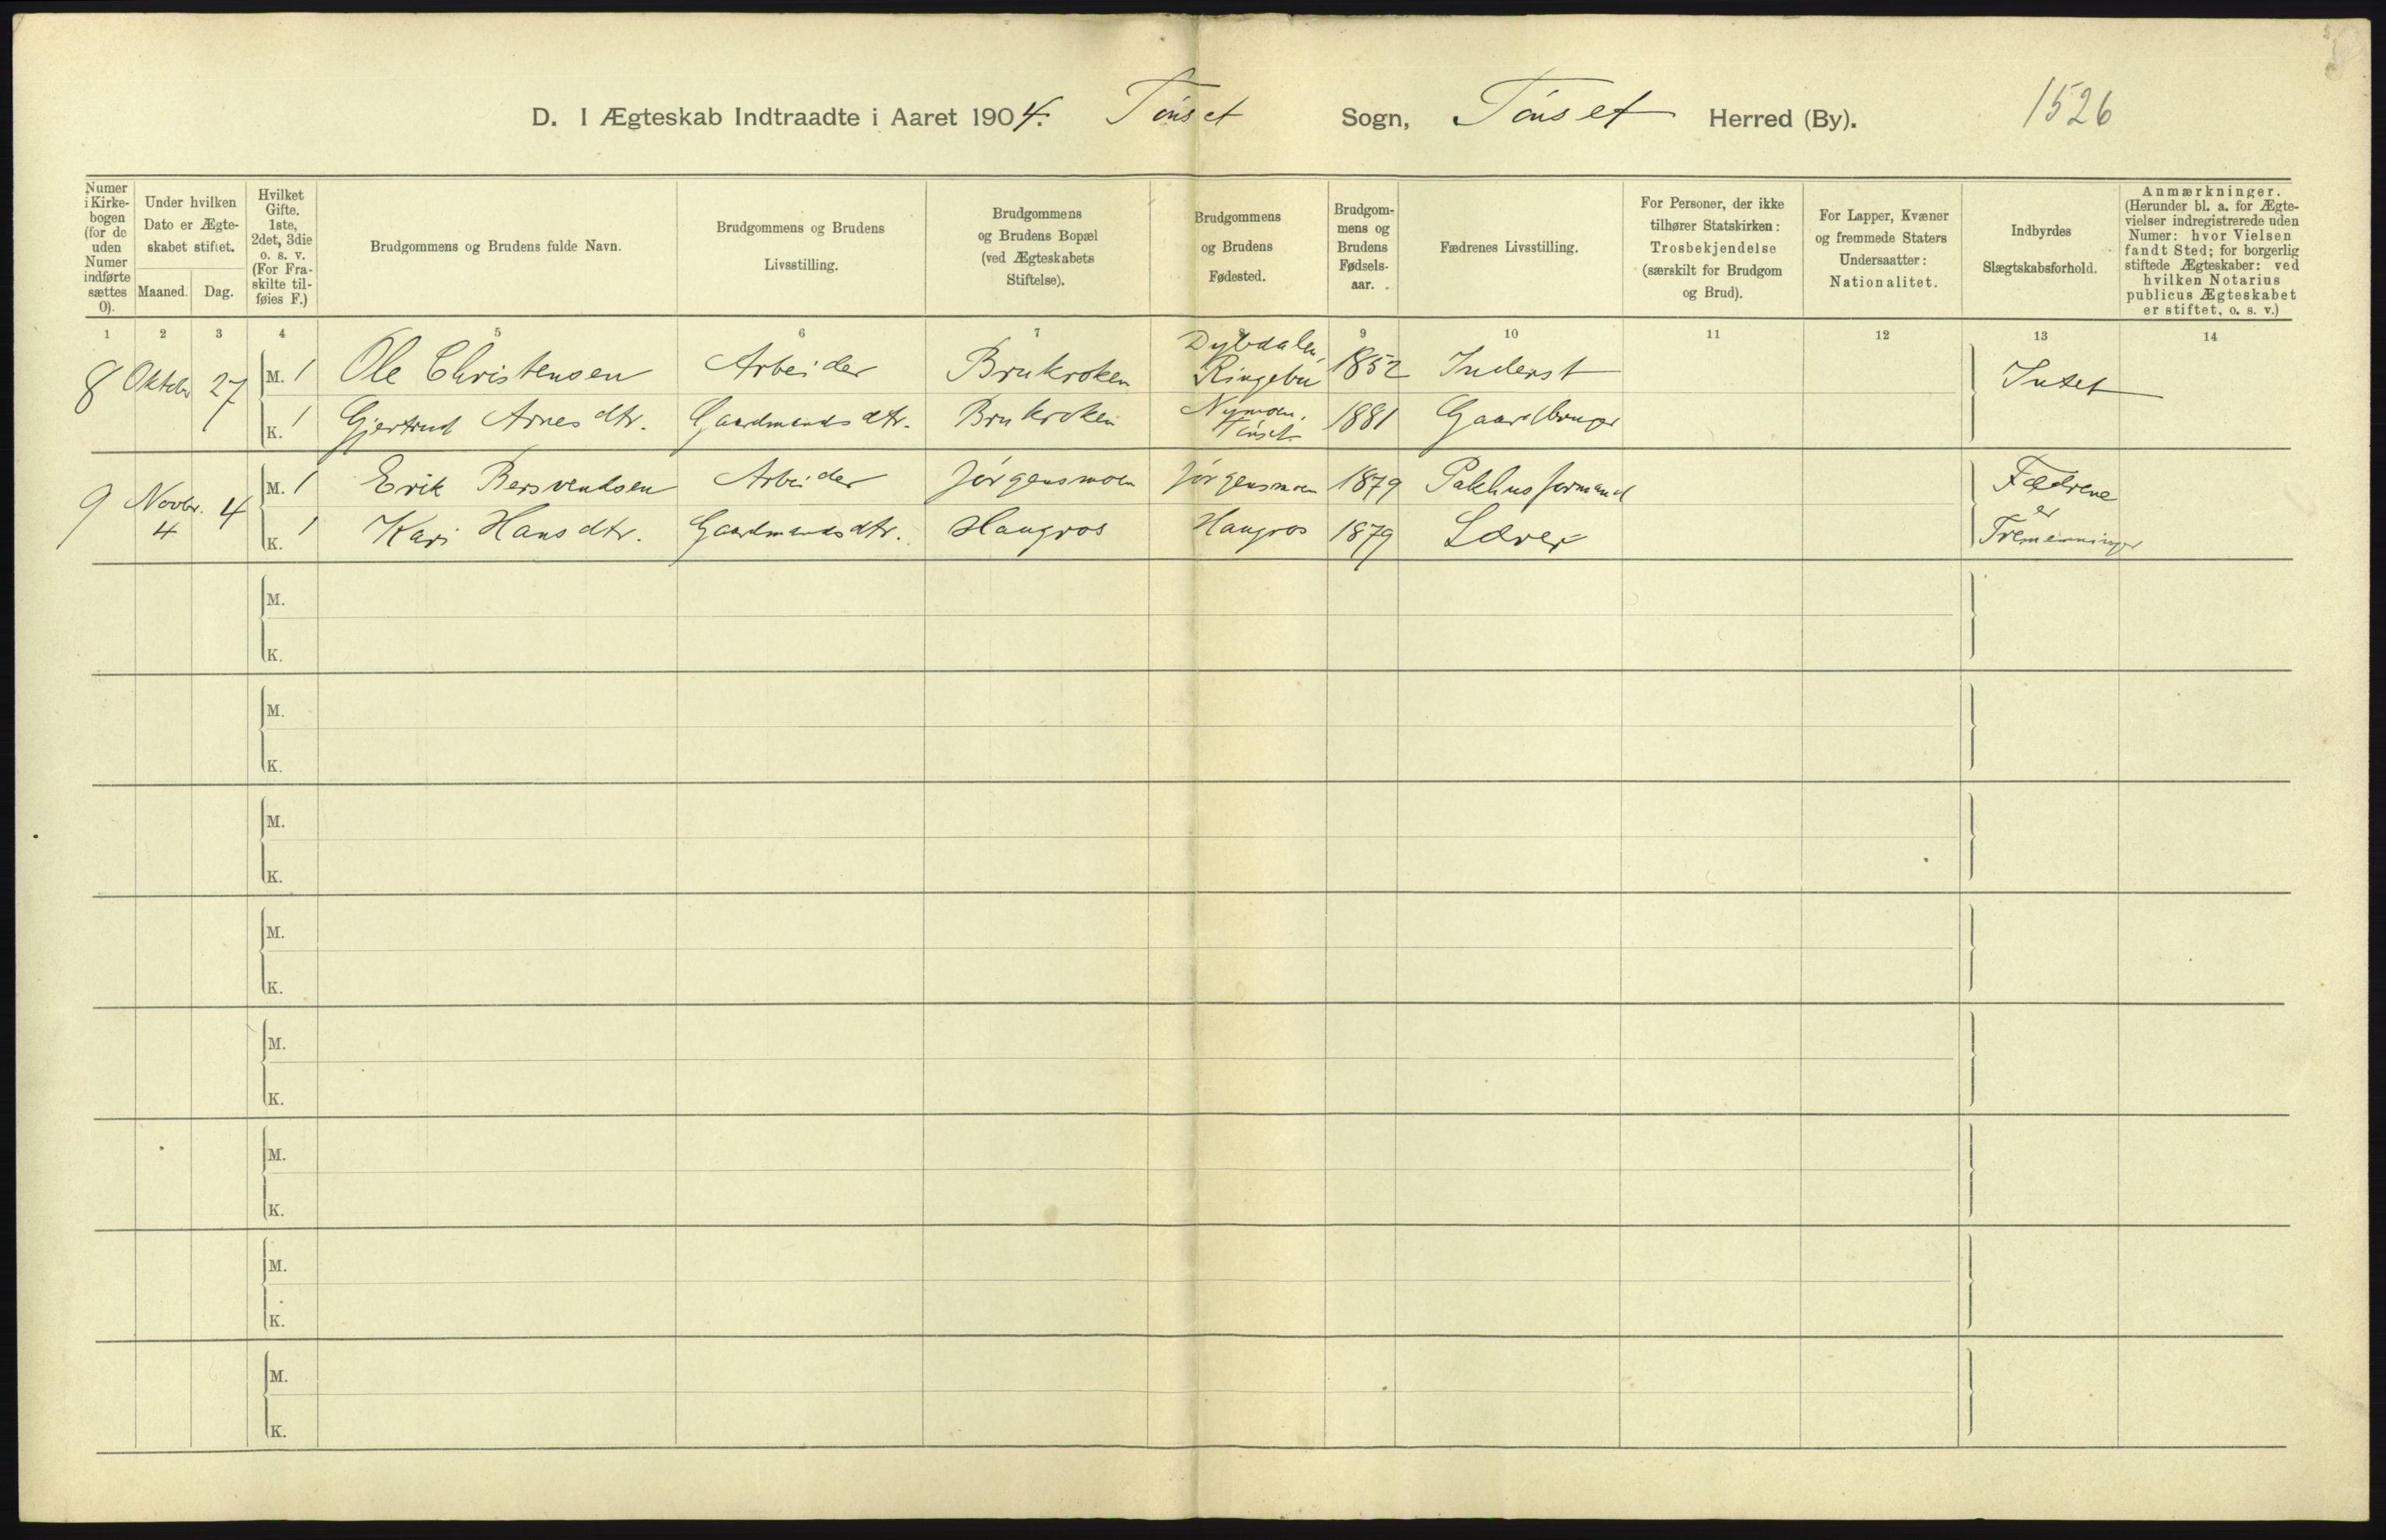 D. I Ægteskab Indtraadte i Aaret 1904. Tønset Sogn, Tønset Herred (By). 1526
Numer i Kirkebogen (for de uden Numer indførte sættes 0).
Under hvilken Dato er Ægteskabet stiftet.
Maaned. Dag.
Hvilket Gifte. 1ste, 2det, 3die o. s. v. (For Fraskilte tilføies F.)
Brudgommens og Brudens fulde Navn.
Brudgommens og Brudens Livsstilling.
Brudgommens og Brudens Bopæl (ved Ægteskabets Stiftelse).
Brudgommens og Brudens Fødested.
Brudgommens og Brudens Fødselsaar.
Fædrenes Livsstilling.
For Personer, der ikke tilhører Statskirken: Trosbekjendelse (særskilt for Brudgom og Brud).
For Lapper, Kvæner og fremmede Staters Undersaatter: Nationalitet.
Indbyrdes Slægtskabsforhold.
Anmærkninger. (Herunder bl. a. for Ægtevielser indregistrerede uden Numer: hvor Vielsen fandt Sted; for borgerlig stiftede Ægteskaber: ved hvilken Notarius publicus Ægteskabet er stiftet, o. s. v.)
1 2 3 4 5 6 7 8 9 10 11 12 13 14
8 Oktobr 27 M. 1 Ole Christensen Arbeider Brukroken Dybdalen, Ringebu 1852 Inderst Intet
K. 1 Gjertrud Arnesdtr. Gaardmandsdtr. Brukroken Nymoen, Tønset 1881 Gaardbruger
9 Novbr. 4 4 M. 1 Erik Bersvendsen Arbeider Jørgensmoen Jørgensmoen 1879 Pakhusformand Fædrene er Tremenninger
K. 1 Kari Hansdtr. Gaardmandsdtr. Haugros Haugros 1879 Lærer
M.
K.
M.
K.
M.
K.
M.
K.
M.
K.
M.
K.
M.
K.
M.
K.